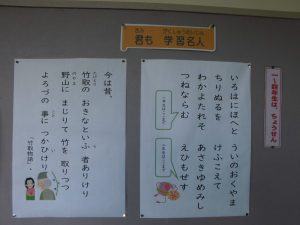 君も 学習名人
一~四年生は、ちょうせん
いろはにほへと
ちりぬるを
わかよたれそ
つねならむ
うゐのおくやま
けふこえて
あさきゆめみし
ゑひもせす
今は昔、
竹取の おきなといふ 者ありけり
野山に まじりて 竹を 取りつつ
よろづの 事に つかひけり
「竹取物語」